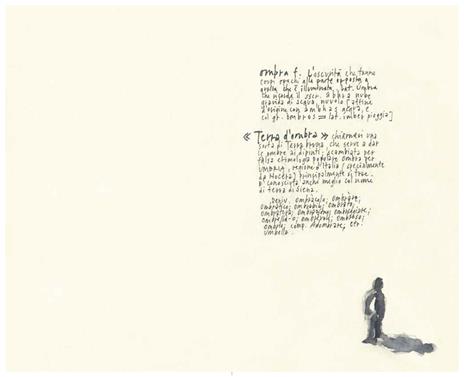 ombra f. L'oscurità che fanno
corpi opachi alla parte opposta a
quella che è illuminata. Lat. Umbra
che ricorda il sscr. abhra nube
gravida di acqua, nuvola [affine
d'origine con ambhas acqua, e
col gr. ombros = lat. imber pioggia]
« Terra d'ombra » chiamasi una
sorta di Terra bruna, che serve a dar
le ombre ai dipinti; scambiata per
falsa etimologia popolare Ombra per
UMBRIA, regione d'Italia (specialmente
da Nocera) principalmente si trae.
E' conosciuta anche meglio col nome
di terra di Siena.
Deriv. Ombràcolo; Ombrare;
Ombràtico; Ombràtile; Ombrato;
Ombreggiare;
Ombrella-o; Ombroso;
comp. Adombrare; Cfr.
Umbella.